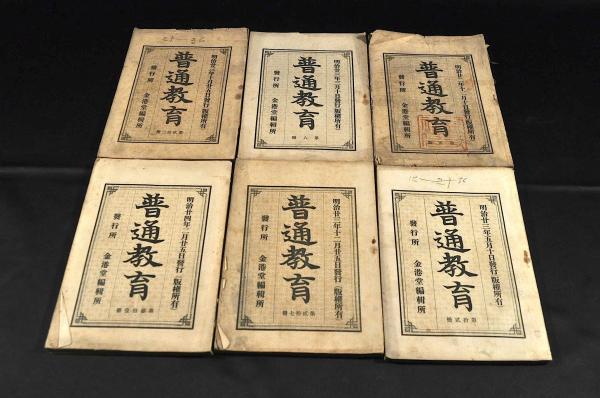 明治廿三年十月廿五日發行 版權所有
普通教育
第貳拾三冊
發行所 金港堂編輯所
明治廿三年三月十日發行 版權所有
普通教育
第八冊
發行所 金港堂編輯所
版權所有
普通教育
發行所 金港堂編輯所
明治廿四年二月廿五日發行 版權所有
普通教育
發行所 金港堂編輯所
明治廿三年十二月廿五日發行 版權所有
普通教育
第貳拾七冊
發行所 金港堂編輯所
明治廿三年五月十日發行 版權所有
普通教育
第拾貳冊
發行所 金港堂編輯所